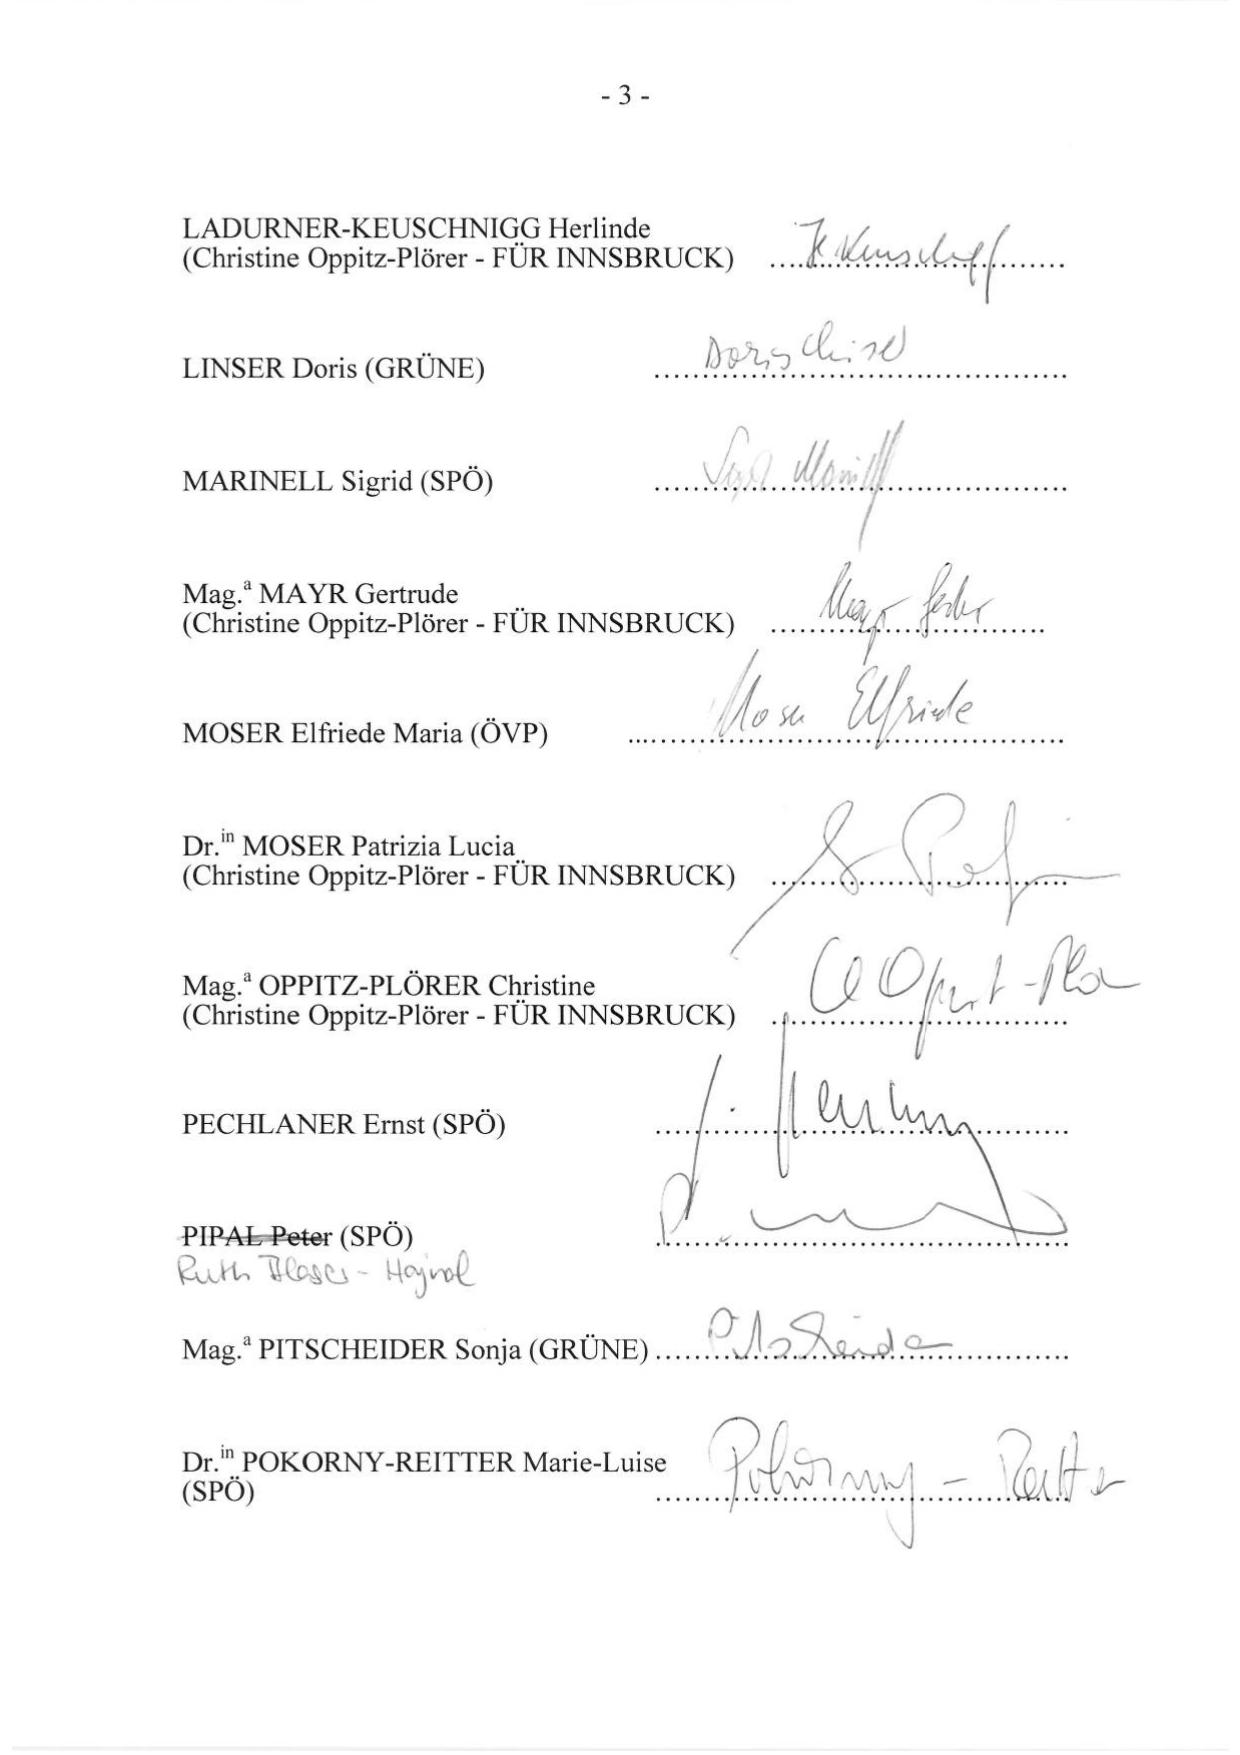 - 3 -
LADURNER-KEUSCHNIGG Herlinde
(Christine Oppitz-Plörer - FÜR INNSBRUCK)
LINSER Doris (GRÜNE)
Doris Linser
MARINELL Sigrid (SPÖ)
Mag.ª MAYR Gertrude
(Christine Oppitz-Plörer - FÜR INNSBRUCK)
Mayr
MOSER Elfriede Maria (ÖVP)
Moser Elfriede
Dr.in MOSER Patrizia Lucia
(Christine Oppitz-Plörer - FÜR INNSBRUCK)
Mag.ª OPPITZ-PLÖRER Christine
(Christine Oppitz-Plörer - FÜR INNSBRUCK)
PECHLANER Ernst (SPÖ)
PIPAL Peter (SPÖ)
Ruth
Mag.ª PITSCHEIDER Sonja (GRÜNE)
Pitscheider
Dr.in POKORNY-REITTER Marie-Luise
(SPÖ)
Pokorny - Reitter